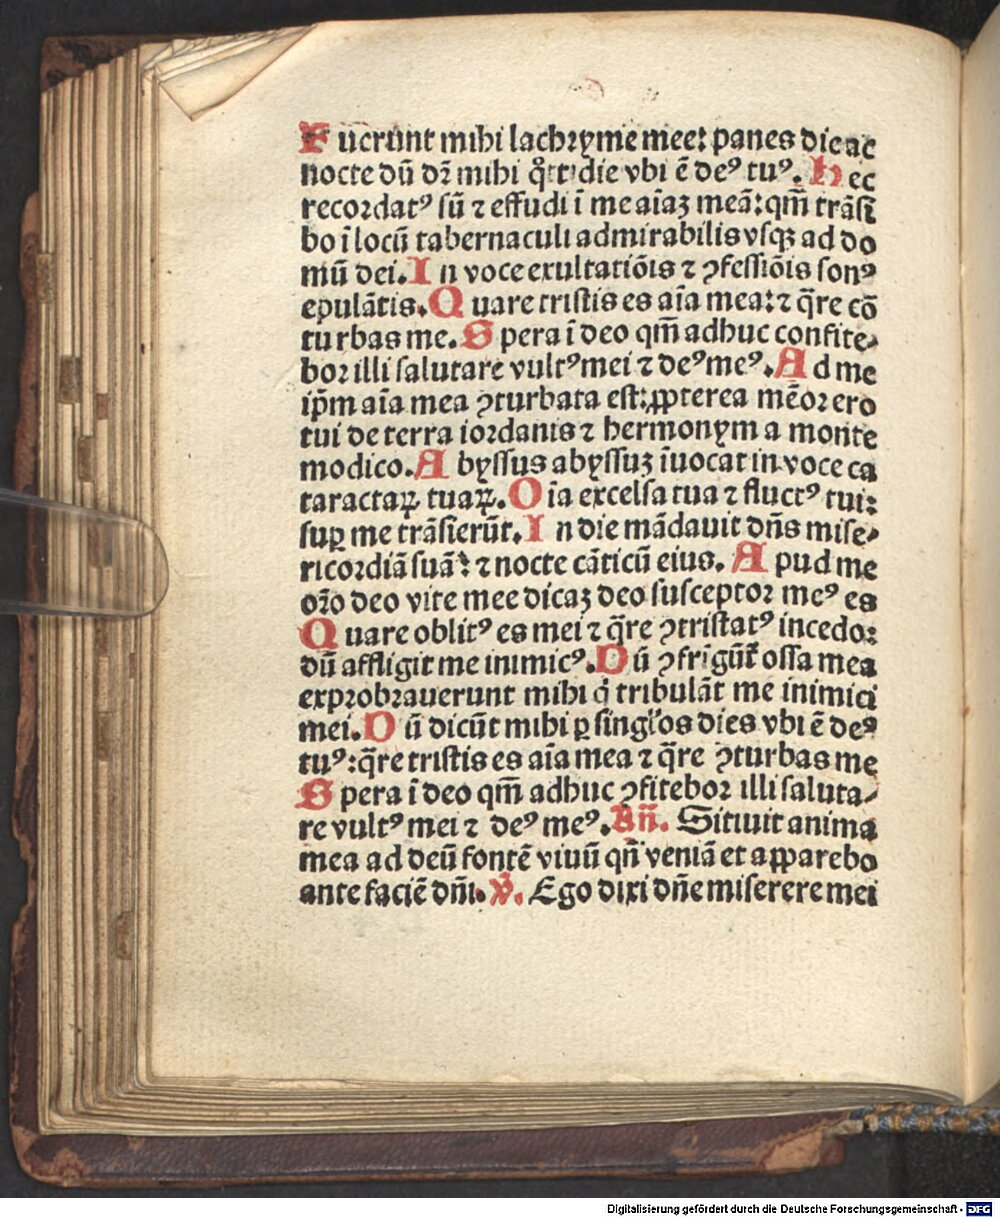 Fuerūnt mihi lachꝛyme mee: panes die ac
nocte dū dꝛ̄ mihi q̊ttidie vbi ē deꝰ tuꝰ. Hec
recoꝛdatꝰ sū ⁊ effudi ī me aīaꝫ meā: qm̄ trāsi
bo ī locū tabernaculi admirabilis vsqꝫ ad do
mū dei. In voce exultatiōis ⁊ ꝯfessiōis sonꝰ
epulātis. Quare tristis es aīa mea: ⁊ q̄re cō
turbas me. Spera ī deo qm̄ adhuc confite⸗
boꝛ illi salutare vultꝰ mei ⁊ deꝰ meꝰ. Ad me
ip̄m aīa mea ꝯturbata est: ꝓpterea mēoꝛ ero
tui de terra ioꝛdanis ⁊ hermonym a monte
modico. Abyssus abyssuꝫ īuocat in voce ca
taractaꝝ tuaꝝ. Oīa excelsa tua ⁊ fluctꝰ tui:
suꝑ me trāsierūt. In die mādauit dn̄s mise⸗
ricoꝛdiā suā: ⁊ nocte cāticū eius. Apud me
oꝛ̄o deo vite mee dicaꝫ deo susceptoꝛ meꝰ es
Quare oblitꝰ es mei ⁊ q̄re ꝯtristatꝰ incedo:
dū affligit me inimicꝰ. Dū ꝯfrīgūt̄ ossa mea
expꝛobꝛauerunt mihi q̇ tribulāt me inimici
mei. Dū dicūt mihi ꝑ singl̓os dies vbi ē deꝰ
tuꝰ: q̄re tristis es aīa mea ⁊ q̄re ꝯturbas me
Spera ī deo qm̄ adhuc ꝯfiteboꝛ illi saluta⸗
re vultꝰ mei ⁊ deꝰ meꝰ. An̄. Sitiuit anima
mea ad deū fontē viuū qn̄ veniā et apparebo
ante faciē dn̄i. ℣. Ego dixi dn̄e miserere mei
Digitalisierung gefördert durch die Deutsche Forschungsgemeinschaft - DFG